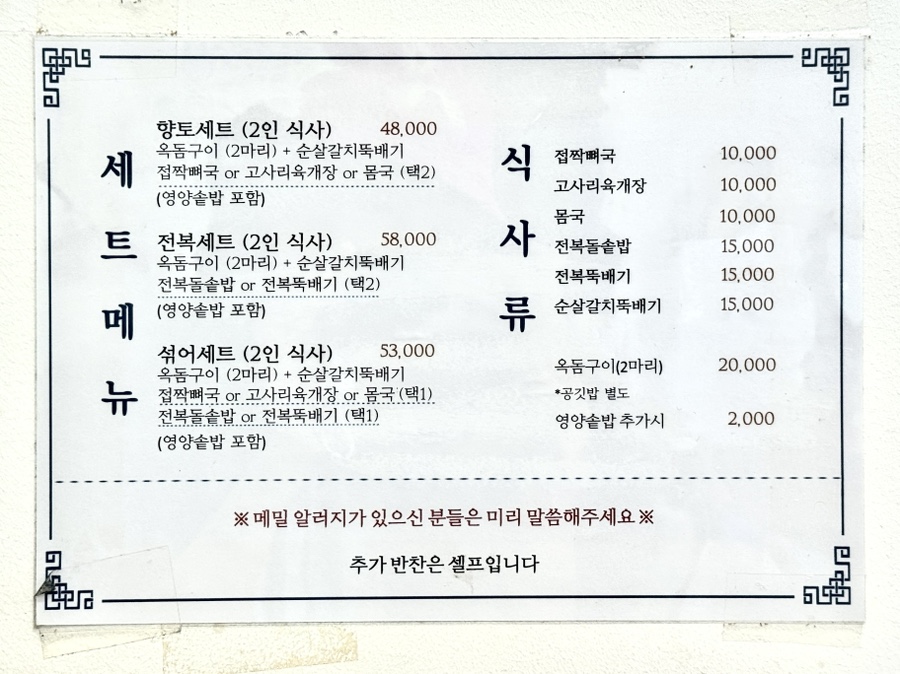 세트메뉴
향토세트 (2인 식사) 48,000
옥돔구이 (2마리) + 순살갈치뚝배기
접짝뼈국 or 고사리육개장 or 몸국 (택2)
(영양솥밥 포함)
전복세트 (2인 식사) 58,000
옥돔구이 (2마리) + 순살갈치뚝배기
전복돌솥밥 or 전복뚝배기 (택2)
(영양솥밥 포함)
섞어세트 (2인 식사) 53,000
옥돔구이 (2마리) + 순살갈치뚝배기
접짝뼈국 or 고사리육개장 or 몸국 (택1)
전복돌솥밥 or 전복뚝배기 (택1)
(영양솥밥 포함)
식사류
접짝뼈국 10,000
고사리육개장 10,000
몸국 10,000
전복돌솥밥 15,000
전복뚝배기 15,000
순살갈치뚝배기 15,000
옥돔구이(2마리) 20,000
*공깃밥 별도
영양솥밥 추가시 2,000
※ 메밀 알러지가 있으신 분들은 미리 말씀해주세요 ※
추가 반찬은 셀프입니다